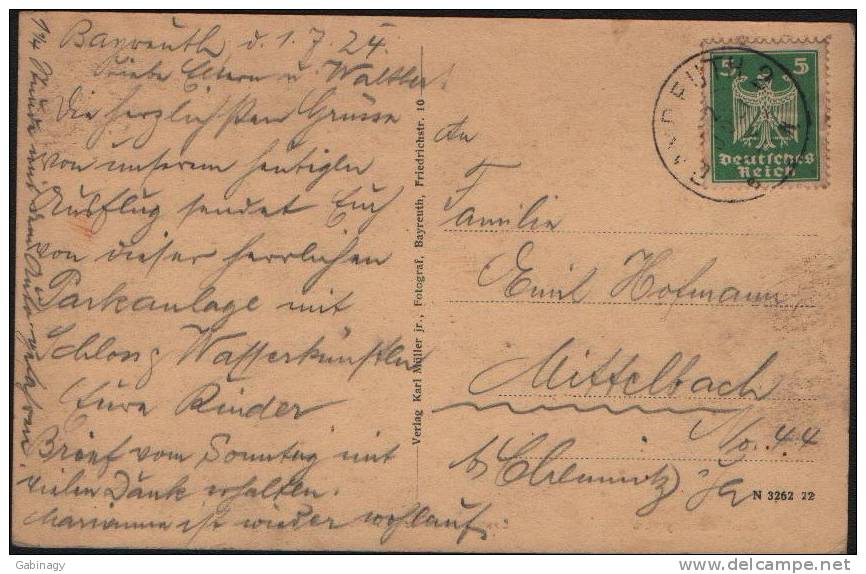 Bayreuth d. 1.7.24.
Liebe Eltern u. Walther!
Die herzlichsten Grüsse
von unserem heutigen
Ausflug sendet Euch
von dieser herrlichen
Parkanlage mit
Schloss, Wasserkünsten
Eure Kinder
Brief vom Sonntag mit
vielen Dank erhalten.
Marianne ist wieder wohlauf.
1¼ Stunde mit dem Auto gefahren
Verlag Karl Müller jr., Fotograf, Bayreuth, Friedrichstr. 10
An
Familie
Emil Hofmann
Mittelbach
No. 44
b/ Chemnitz
N 3262 22
5 5
Deutsches
Reich
BAYREUTH 2
Gabinagy
delcampe.net